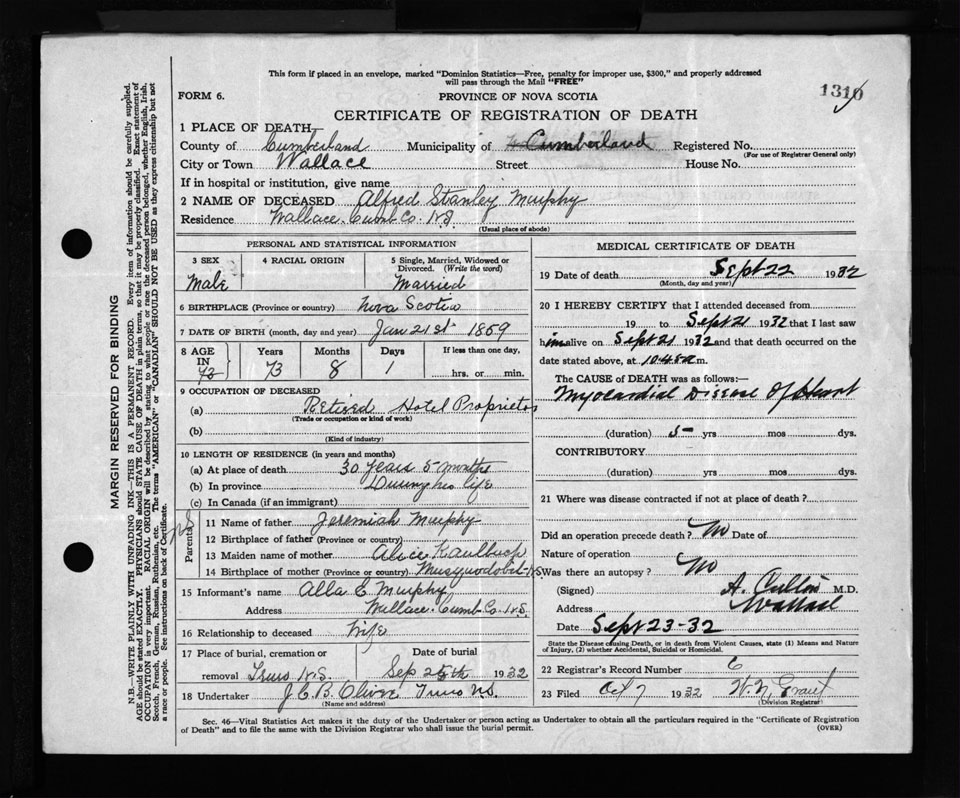 This form if placed in an envelope, marked "Dominion Statistics—Free, penalty for improper use, $300," and properly addressed
will pass through the Mail "FREE"
FORM 6. PROVINCE OF NOVA SCOTIA 1310
CERTIFICATE OF REGISTRATION OF DEATH
1 PLACE OF DEATH
County of Cumberland Municipality of Cumberland Registered No.
(For use of Registrar General only)
City or Town Wallace Street House No.
If in hospital or institution, give name
2 NAME OF DECEASED Alfred Stanley Murphy
Residence Wallace. Cumb Co. N.S.
(Usual place of abode)
PERSONAL AND STATISTICAL INFORMATION
3 SEX 4 RACIAL ORIGIN 5 Single, Married, Widowed or
Divorced. (Write the word)
Male Married
6 BIRTHPLACE (Province or country) Nova Scotia
7 DATE OF BIRTH (month, day and year) Jan 21st 1859
8 AGE Years Months Days If less than one day,
IN
73 73 8 1 hrs. or min.
9 OCCUPATION OF DECEASED
(a) Retired Hotel Proprietor
(Trade or occupation or kind of work)
(b)
(Kind of industry)
10 LENGTH OF RESIDENCE (in years and months)
(a) At place of death 30 years 5 months
(b) In province During his life
(c) In Canada (if an immigrant)
Parents
11 Name of father Jeremiah Murphy
12 Birthplace of father (Province or country)
13 Maiden name of mother Alice Kaulbach
14 Birthplace of mother (Province or country) Musquodobit-NS
15 Informant's name Alla E Murphy
Address Wallace. Cumb Co. N.S.
16 Relationship to deceased Wife
17 Place of burial, cremation or Date of burial
removal Truro N.S. Sep 25th 1932
18 Undertaker J.C.B. Olive Truro N.S.
(Name and address)
MEDICAL CERTIFICATE OF DEATH
19 Date of death Sept 22 1932
(Month, day and year)
20 I HEREBY CERTIFY that I attended deceased from
19 to Sept 21 1932 that I last saw
him alive on Sept 21 1932 and that death occurred on the
date stated above, at 10.45 a m.
The CAUSE OF DEATH was as follows:—
Myocardial Disease Of Heart
(duration) 5 yrs mos dys.
CONTRIBUTORY
(duration) yrs mos dys.
21 Where was disease contracted if not at place of death?
Did an operation precede death? No Date of
Nature of operation
Was there an autopsy? No
(Signed) A. M.D.
Address Wallace
Date Sept 23-32
State the Disease causing Death, or in death from Violent Causes, state (1) Means and Nature
of Injury, (2) whether Accidental, Suicidal or Homicidal.
22 Registrar's Record Number 6
23 Filed Oct 7 1932 W. N.
(Division Registrar)
Sec. 46—Vital Statistics Act makes it the duty of the Undertaker or person acting as Undertaker to obtain all the particulars required in the "Certificate of Registration
of Death" and to file the same with the Division Registrar who shall issue the burial permit. (OVER)
MARGIN RESERVED FOR BINDING
N.B.—WRITE PLAINLY WITH UNFADING INK—THIS IS A PERMANENT RECORD. Every item of information should be carefully supplied.
AGE should be stated EXACTLY. PHYSICIANS should STATE CAUSE OF DEATH in plain terms, so that it may be properly classified. Exact statement of
OCCUPATION is very important. RACIAL ORIGIN will be described by stating to what people or race the deceased person belonged, whether English, Irish,
Scotch, French, German, Russian, Ruthenian, etc. The terms "AMERICAN" or "CANADIAN" SHOULD NOT BE USED as they express citizenship but not
a race or people. See instructions on back of Certificate.